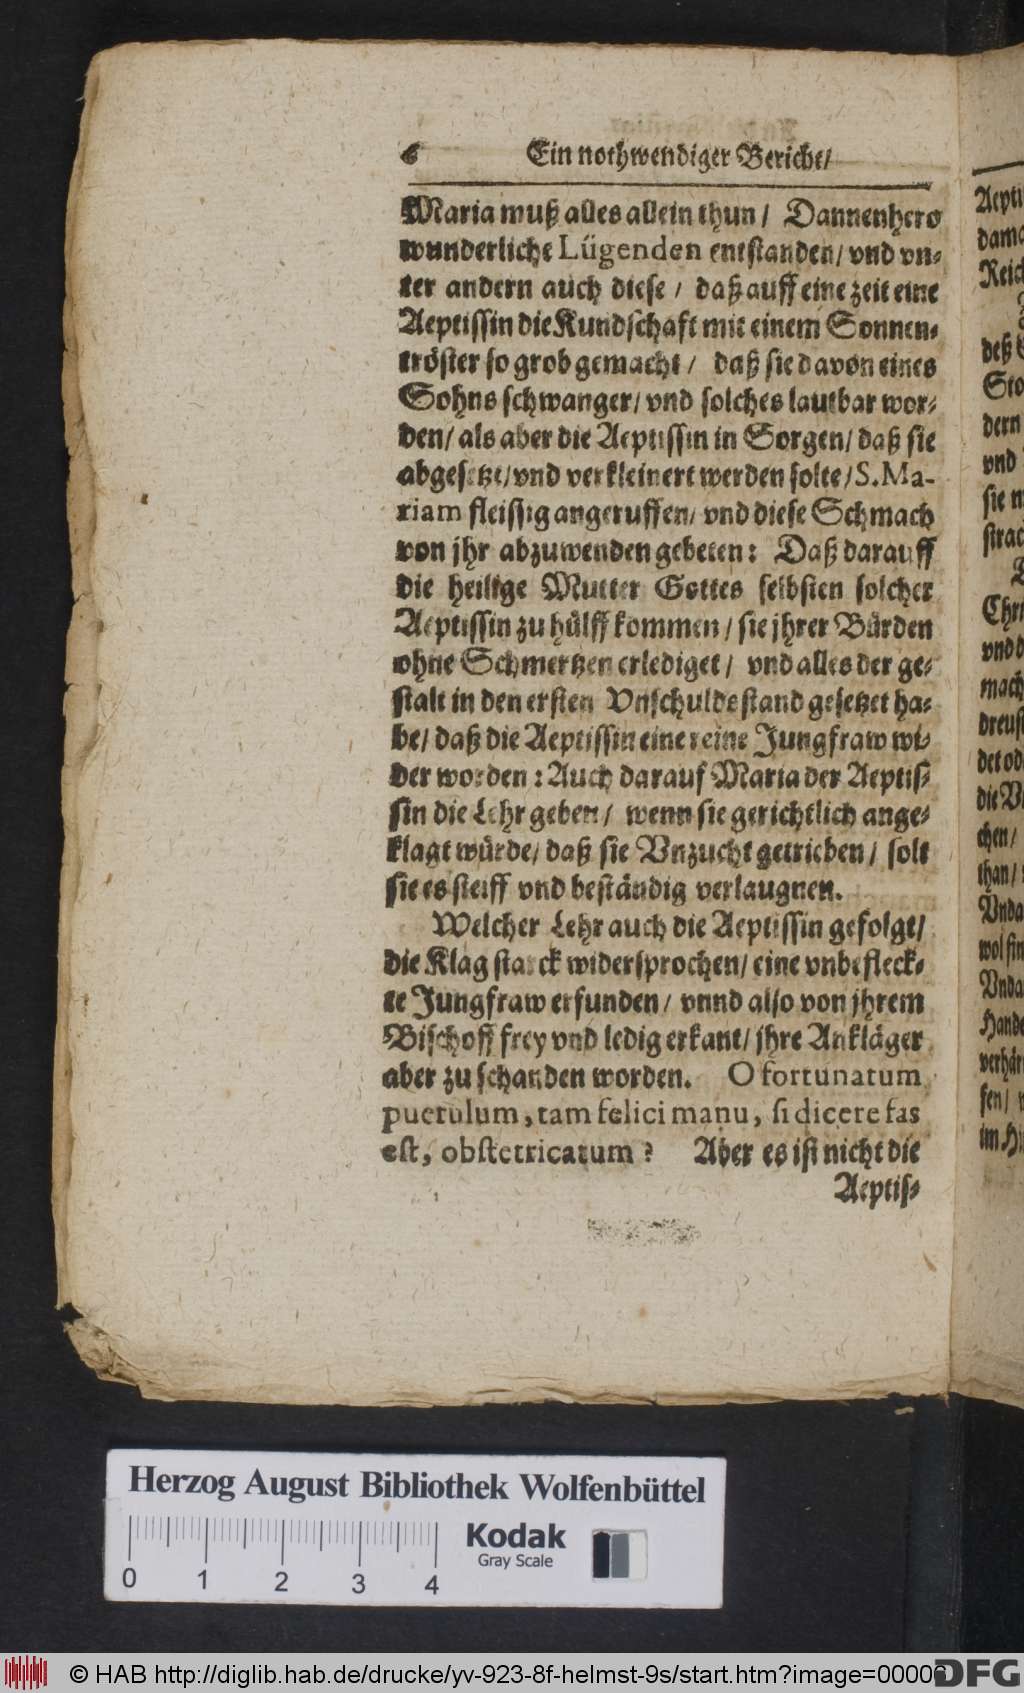 6 Ein nothwendiger Bericht/
Maria muß alles allein thun / Dannenhero
wunderliche Lügenden entstanden/ vnd vn⸗
ter andern auch diese / daß auff eine zeit eine
Aeptissin die Kundschaft mit einem Sonnen⸗
tröster so grob gemacht / daß sie davon eines
Sohns schwanger/ vnd solches lautbar wor⸗
den/ als aber die Aeptissin in Sorgen/ daß sie
abgesetzt/ vnd verkleinert werden solte/ S. Ma-
riam fleissig angeruffen/ vnd diese Schmach
von jhr abzuwenden gebeten: Daß darauff
die heilige Mutter Gottes selbsten solcher
Aeptissin zu hülff kommen / sie jhrer Bürden
ohne Schmertzen erlediget / vnd alles der ge⸗
stalt in den ersten Vnschuldestand gesetzet ha⸗
be/ daß die Aeptissin eine reine Jungfraw wi⸗
der worden: Auch darauf Maria der Aeptis⸗
sin die Lehr geben / wenn sie gerichtlich ange⸗
klagt würde/ daß sie Vnzucht getrieben / solt
sie es steiff vnd beständig verlaugnen.
Welcher Lehr auch die Aeptissin gefolgt/
die Klag starck widersprochen/ eine vnbefleck⸗
te Jungfraw erfunden/ vnnd also von jhrem
Bischoff frey vnd ledig erkant/ jhre Ankläger
aber zu schanden worden. O fortunatum
puerulum, tam felici manu, si dicere fas
est, obstetricatum? Aber es ist nicht die
Aeptis⸗
Aepti
dama
Reich
deß
Sto
dern
vnd
sie
strac
Chri
vnd d
mach
dreus
det od
die V
chen/
than/
Vnda
wol sin
Vnda
Hande
verhär
sen/
im H
Herzog August Bibliothek Wolfenbüttel
Kodak
Gray Scale
0 1 2 3 4
© HAB http://diglib.hab.de/drucke/yv-923-8f-helmst-9s/start.htm?image=00006
DFG